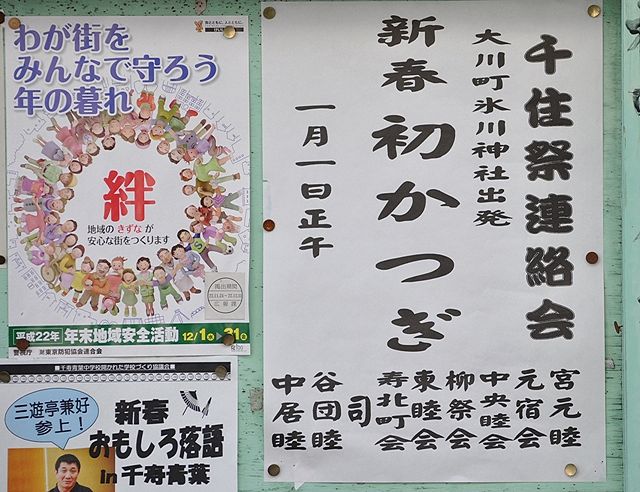 わが街を
みんなで守ろう
年の暮れ
絆
地域の きずな が
安心な街をつくります
掲出期間
広報課
平成22年 年末地域安全活動 12/1 31
警視庁 財東京防犯協会連合会
千寿青葉中学校開かれた学校づくり協議会
三遊亭兼好
参上!
新春
おもしろ落語
in 千寿青葉
千住祭連絡会
大川町氷川神社出発
新春初かつぎ
一月一日正午
宮元睦
元宿会
中央睦会
柳祭会
東睦会
寿北町会
司
谷団睦
中居睦